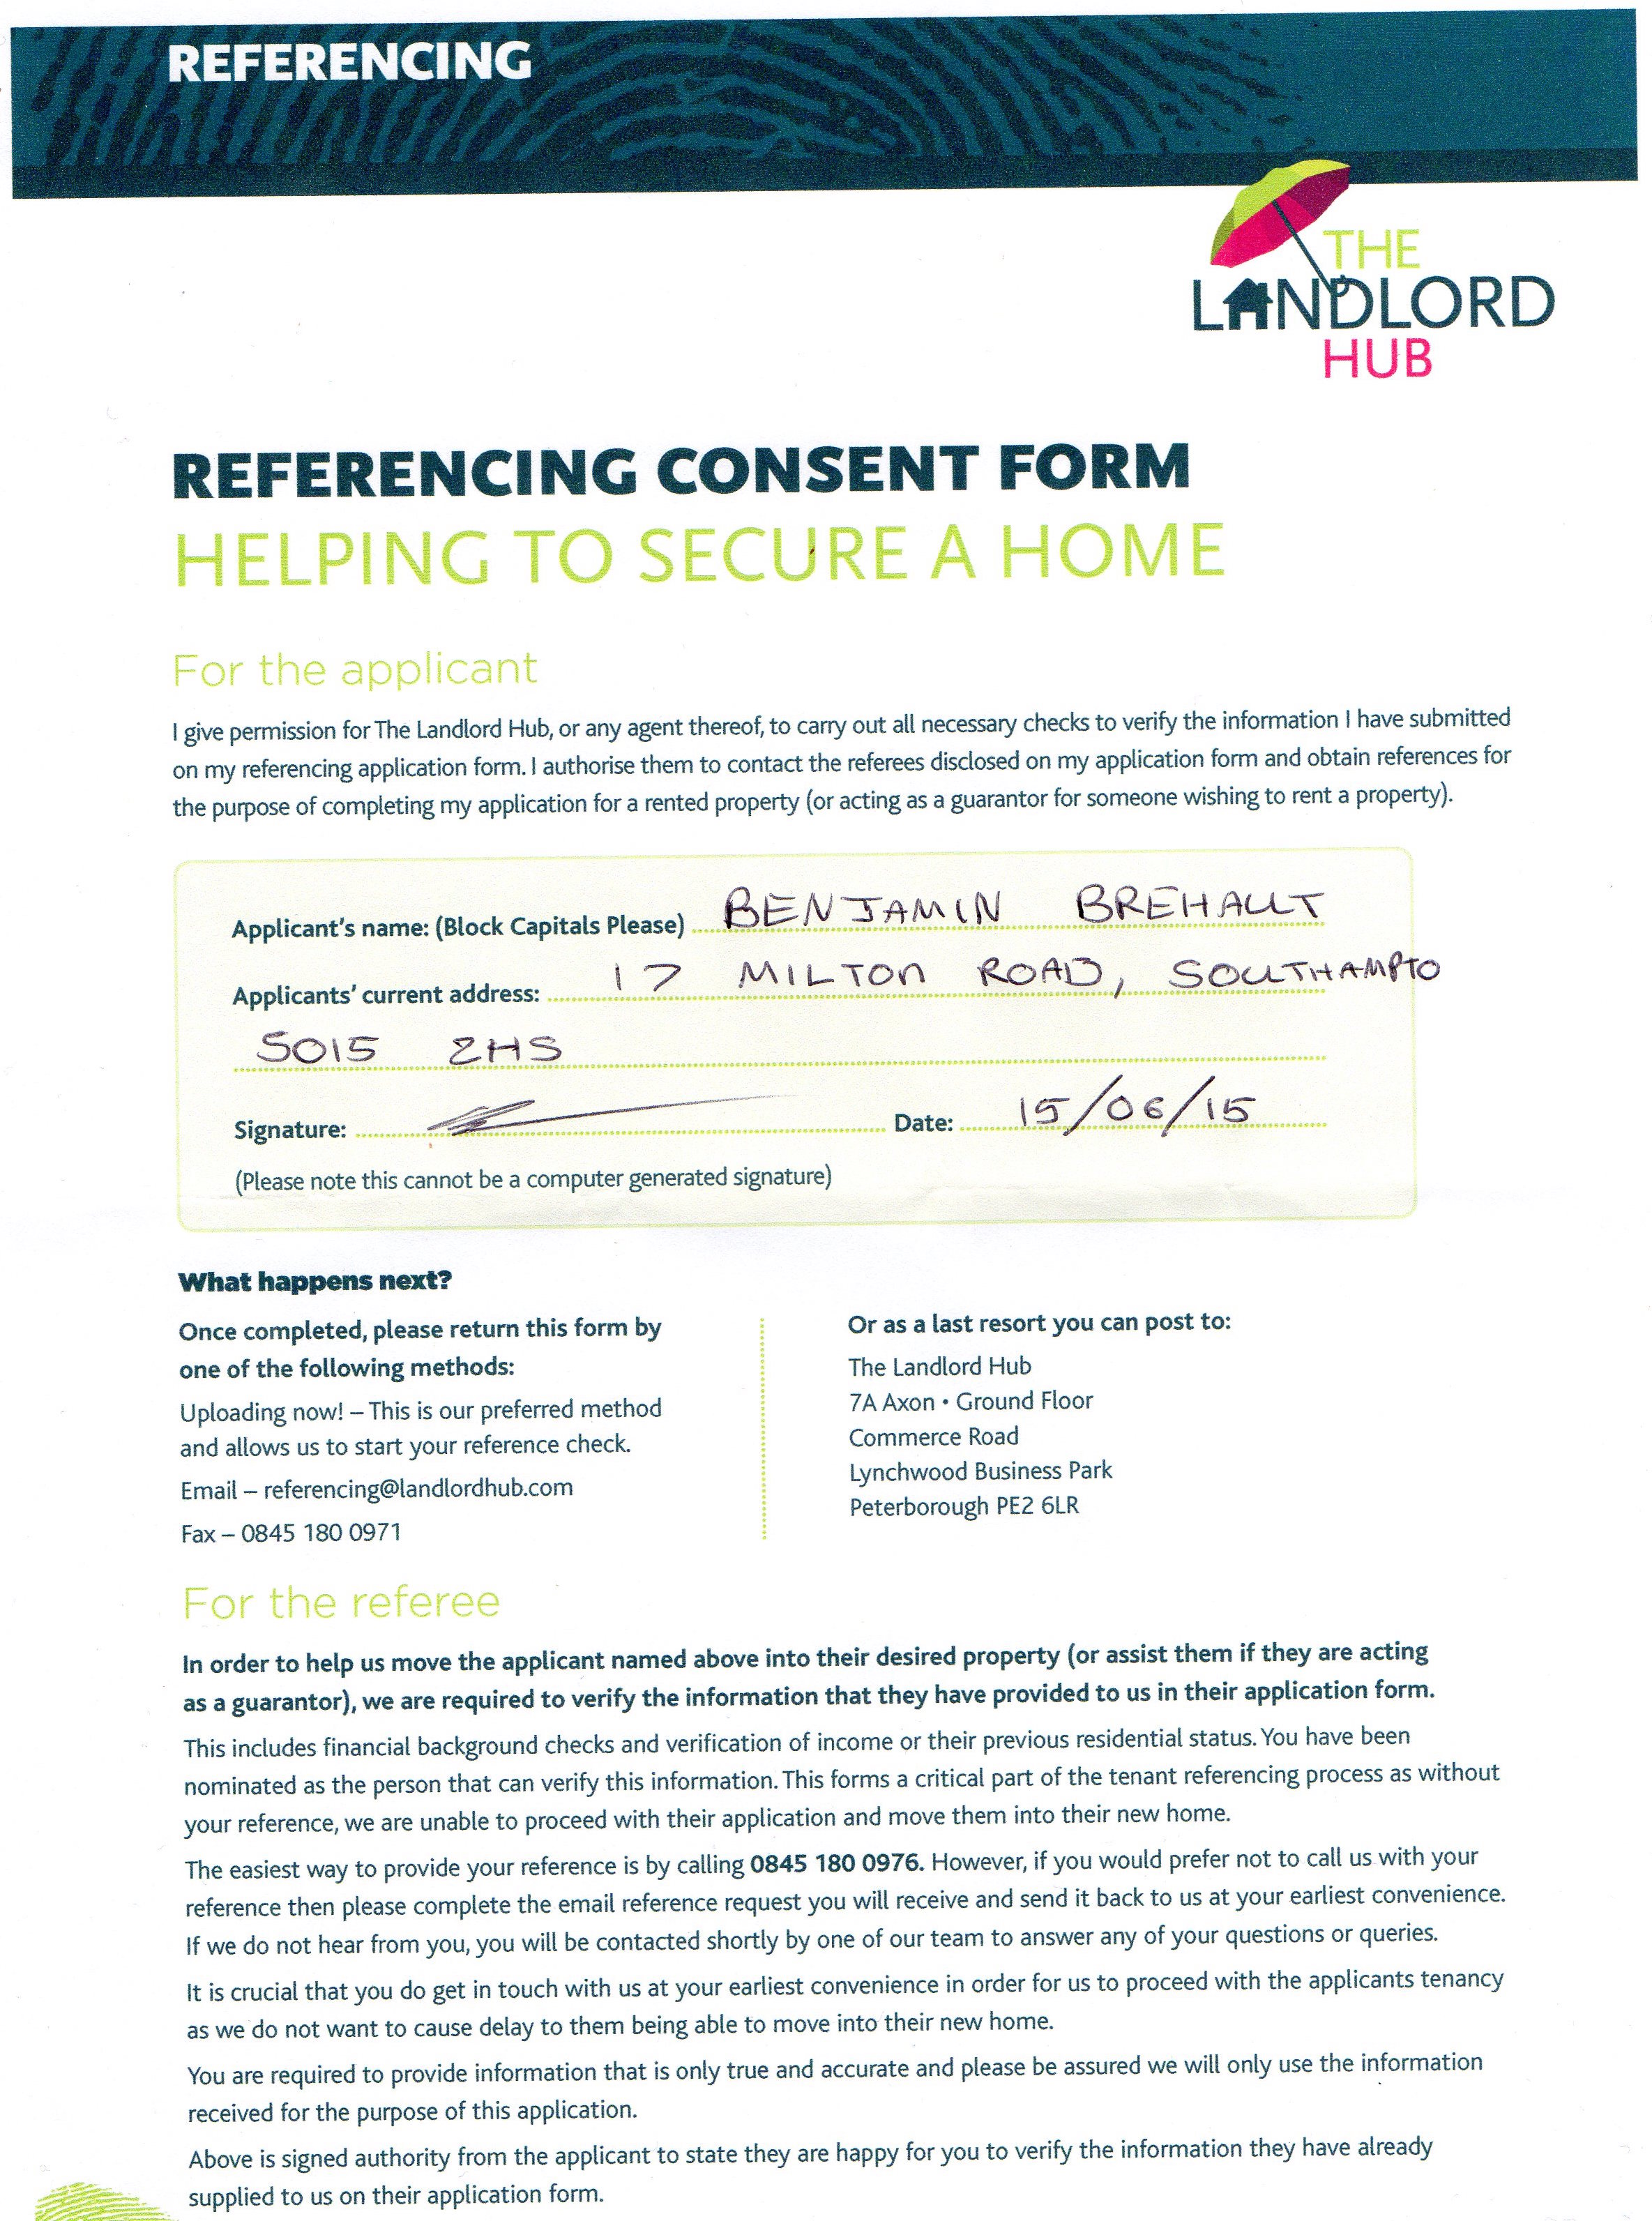 REFERENCING
THE
LANDLORD
HUB
REFERENCING CONSENT FORM
HELPING TO SECURE A HOME
For the applicant
I give permission for The Landlord Hub, or any agent thereof, to carry out all necessary checks to verify the information I have submitted
on my referencing application form. I authorise them to contact the referees disclosed on my application form and obtain references for
the purpose of completing my application for a rented property (or acting as a guarantor for someone wishing to rent a property).
Applicant's name: (Block Capitals Please) BENJAMIN BREHAUT
Applicants' current address: 17 MILTON ROAD, SOUTHAMPTO
SO15 2HS
Signature: Date: 15/06/15
(Please note this cannot be a computer generated signature)
What happens next?
Once completed, please return this form by
one of the following methods:
Uploading now! – This is our preferred method
and allows us to start your reference check.
Email – referencing@landlordhub.com
Fax – 0845 180 0971
Or as a last resort you can post to:
The Landlord Hub
7A Axon • Ground Floor
Commerce Road
Lynchwood Business Park
Peterborough PE2 6LR
For the referee
In order to help us move the applicant named above into their desired property (or assist them if they are acting
as a guarantor), we are required to verify the information that they have provided to us in their application form.
This includes financial background checks and verification of income or their previous residential status. You have been
nominated as the person that can verify this information. This forms a critical part of the tenant referencing process as without
your reference, we are unable to proceed with their application and move them into their new home.
The easiest way to provide your reference is by calling 0845 180 0976. However, if you would prefer not to call us with your
reference then please complete the email reference request you will receive and send it back to us at your earliest convenience.
If we do not hear from you, you will be contacted shortly by one of our team to answer any of your questions or queries.
It is crucial that you do get in touch with us at your earliest convenience in order for us to proceed with the applicants tenancy
as we do not want to cause delay to them being able to move into their new home.
You are required to provide information that is only true and accurate and please be assured we will only use the information
received for the purpose of this application.
Above is signed authority from the applicant to state they are happy for you to verify the information they have already
supplied to us on their application form.